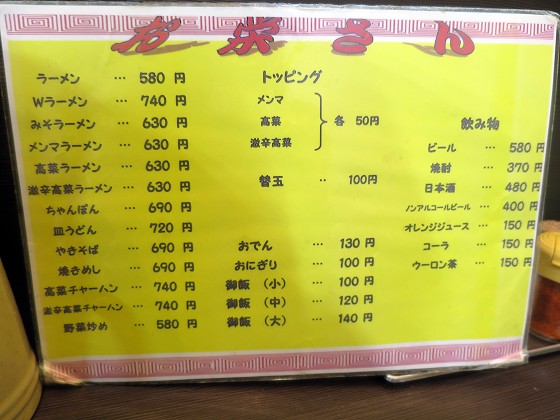 お栄さん
ラーメン … 580 円
Wラーメン … 740 円
みそラーメン … 630 円
メンマラーメン … 630 円
高菜ラーメン … 630 円
激辛高菜ラーメン … 630 円
ちゃんぽん … 690 円
皿うどん … 720 円
やきそば … 690 円
焼きめし … 690 円
高菜チャーハン … 740 円
激辛高菜チャーハン … 740 円
野菜炒め … 580 円
トッピング
メンマ
高菜
激辛高菜
各 50円
替玉 ‥ 100円
おでん … 130 円
おにぎり … 100 円
御飯 (小) … 100 円
御飯 (中) … 120 円
御飯 (大) … 140 円
飲み物
ビール … 580 円
焼酎 … 370 円
日本酒 … 480 円
ノンアルコールビール … 400 円
オレンジジュース … 150 円
コーラ … 150 円
ウーロン茶 … 150 円